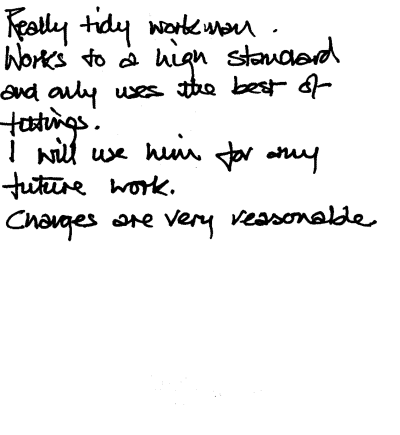 Really tidy workman.
Works to a high standard
and only uses the best of
fittings.
I will use him for any
future work.
Charges are very reasonable.